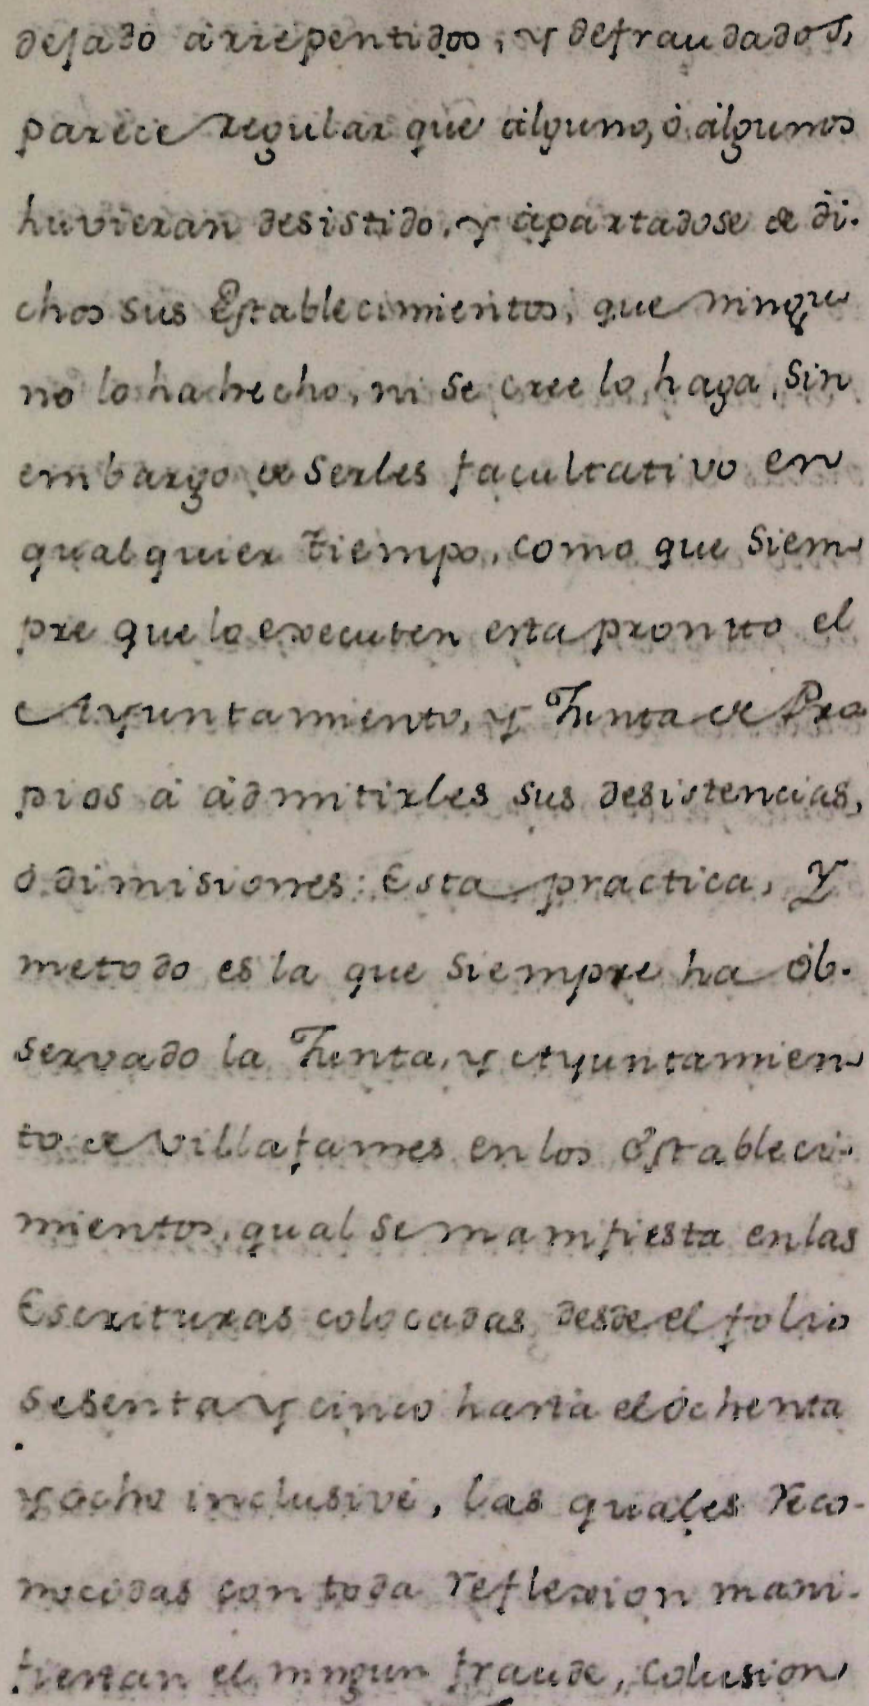 dejado arrepentidos, y defraudados,
parece regular que alguno, ò algunos
huvieran desistido, y apartadose de di-
chos sus Establecimientos, que ningu
no lo ha hecho, ni se cree lo haga, sin
embargo de serles facultativo en
qualquier tiempo, como que siem
pre que lo executen esta pronto el
Ayuntamiento, y Junta de Pro
pios à admitirles sus desistencias,
ò dimisiones: Esta practica, y
metodo es la que siempre ha ob-
servado la Junta, y Ayuntamien
to de Villafames en los Estableci-
mientos, qual se manifiesta en las
Escrituras colocadas desde el folio
sesenta y cinco hasta el ochenta
y ocho inclusivè, las quales reco-
nocidas con toda reflexion mani-
fiestan el ningun fraude, colusion